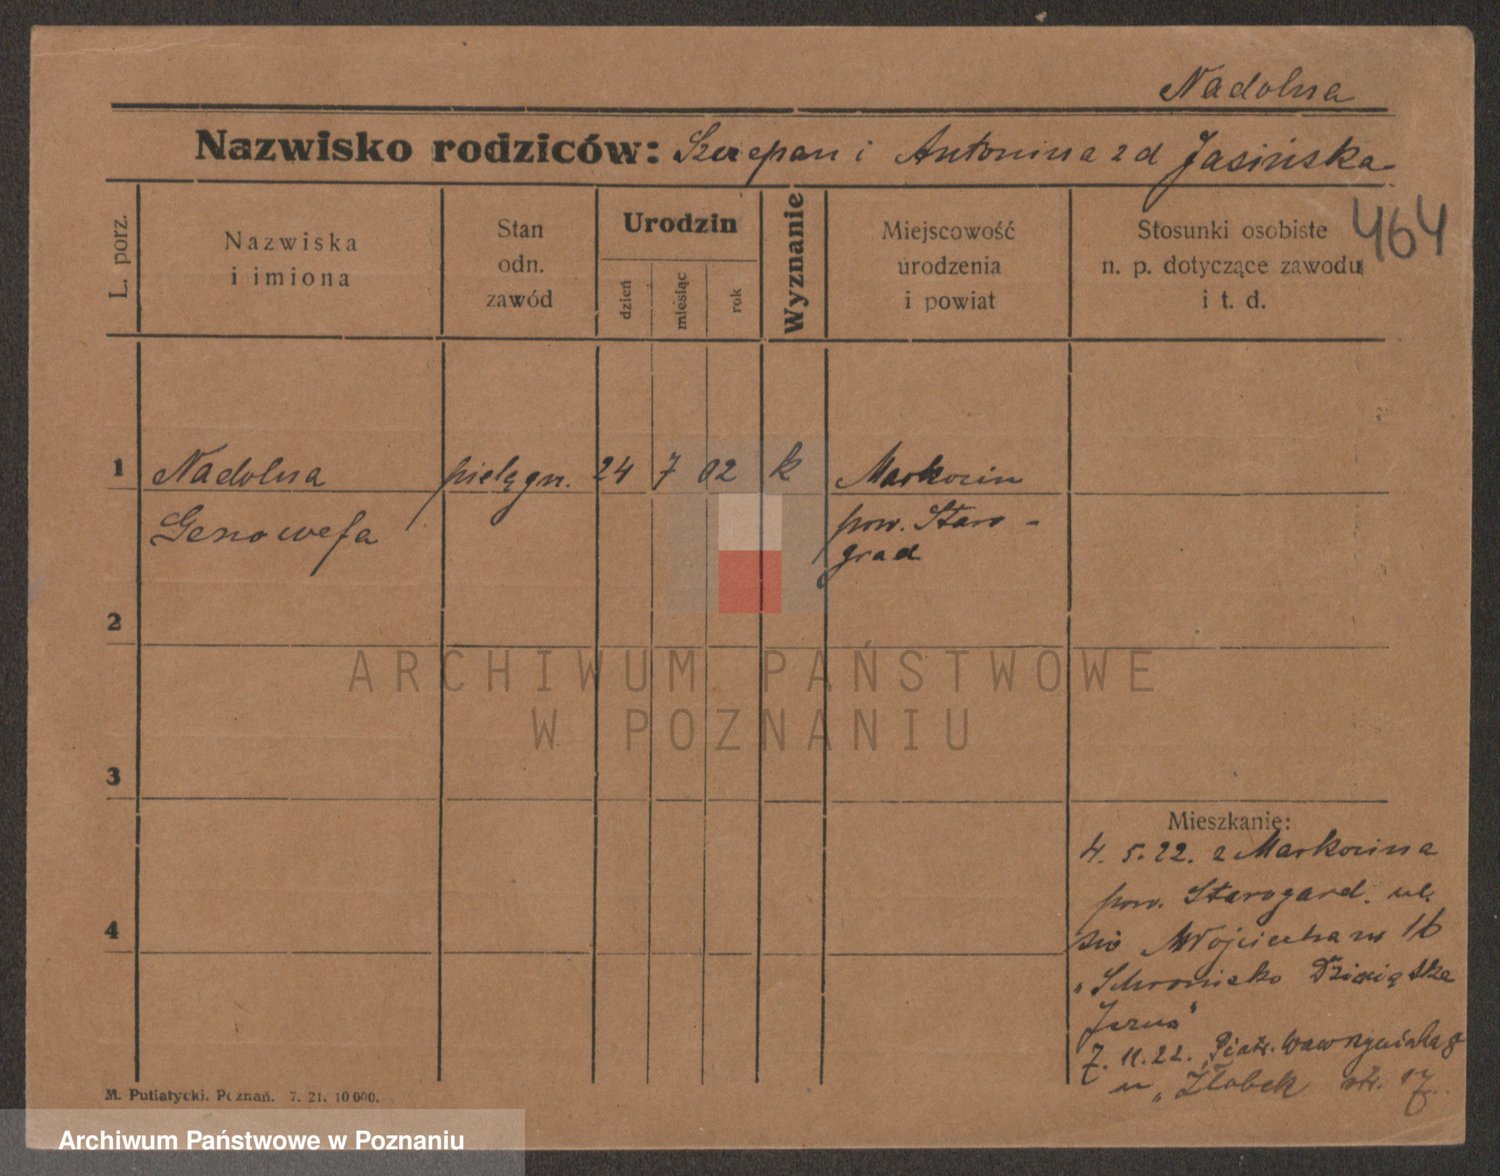 Nadolna
Nazwisko rodziców: Szczepan i Antonina z d Jasińska
464
L. porz.
Nazwiska
i imiona
Stan
odn.
zawód
Urodzin
dzień
miesiąc
rok
Wyznanie
Miejscowość
urodzenia
i powiat
Stosunki osobiste
n. p. dotyczące zawodu
i t. d.
1
Nadolna
Genowefa
pielęgn.
24
7
02
k
Markocin
pow. Staro-
grad
2
3
4
Mieszkanie:
4. 5. 22. z Markocina
pow. Starogard. ul.
Wojciecha 16
"Schronisko Dzieciątka
Jezus"
7. 11. 22. Piotr. Wawrzyniaka 8
"Żłobek str. 17.
M. Putiatycki. Poznań. 7. 21. 10 000.
ARCHIWUM PAŃSTWOWE
W POZNANIU
Archiwum Państwowe w Poznaniu